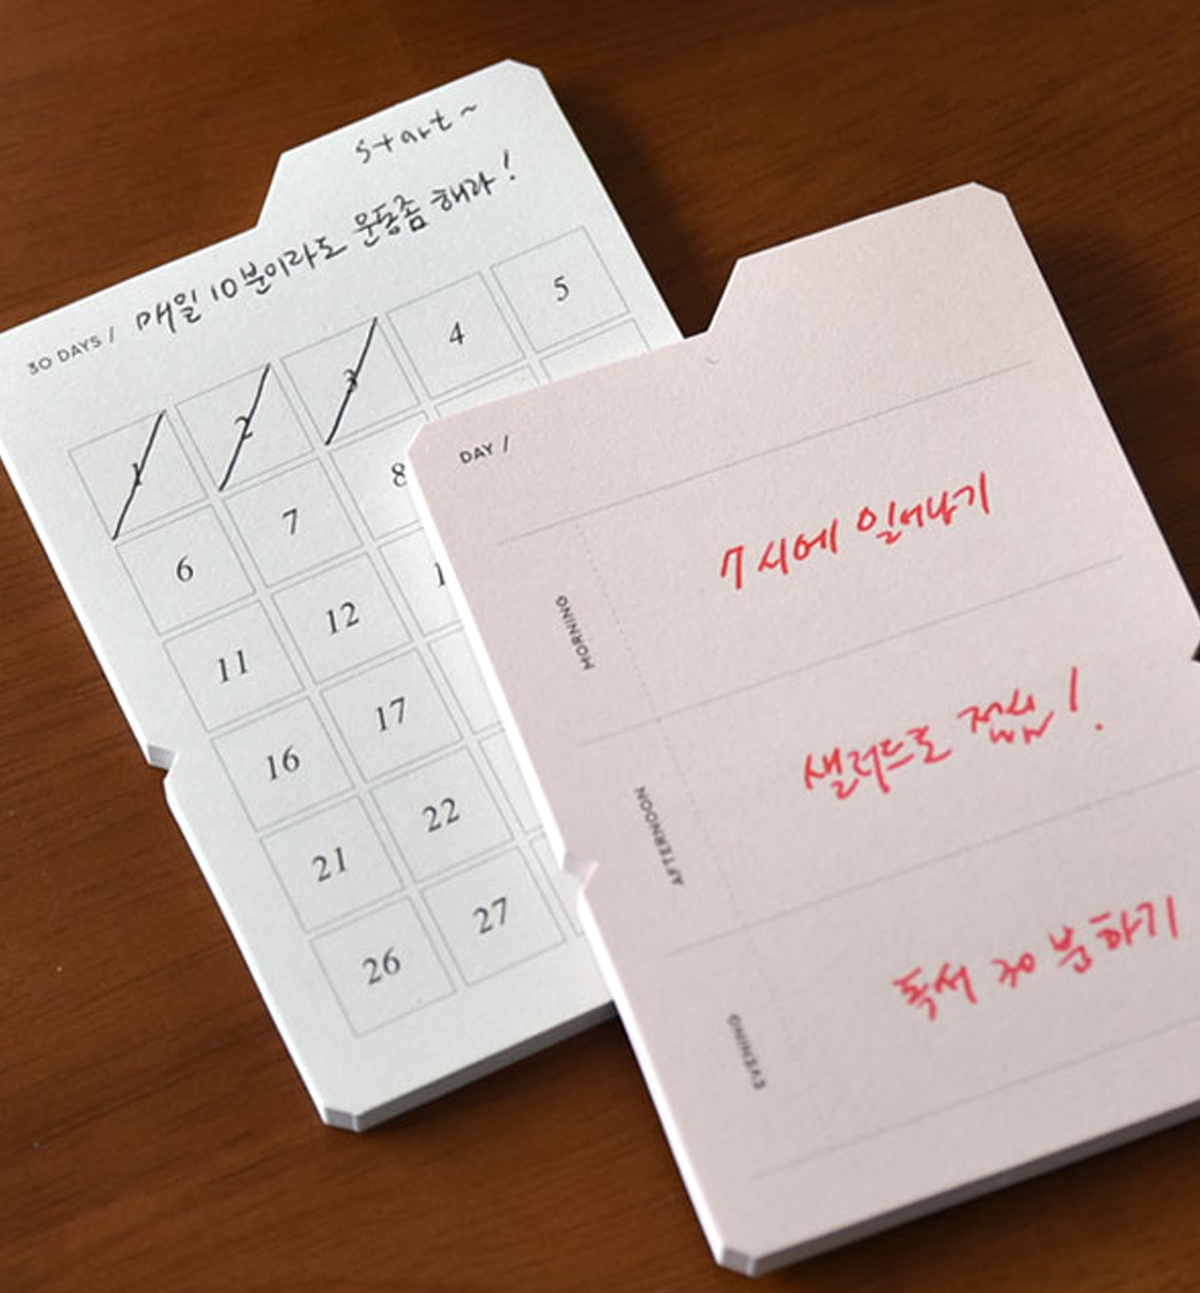 start~
30 DAYS / 매일 10분이라도 운동좀 해라!
1 2 3 4 5
6 7 8
11 12
16 17
21 22
26 27
DAY /
MORNING 7시에 일어나기
AFTERNOON 샐러드로 점심!
EVENING 독서 30분하기